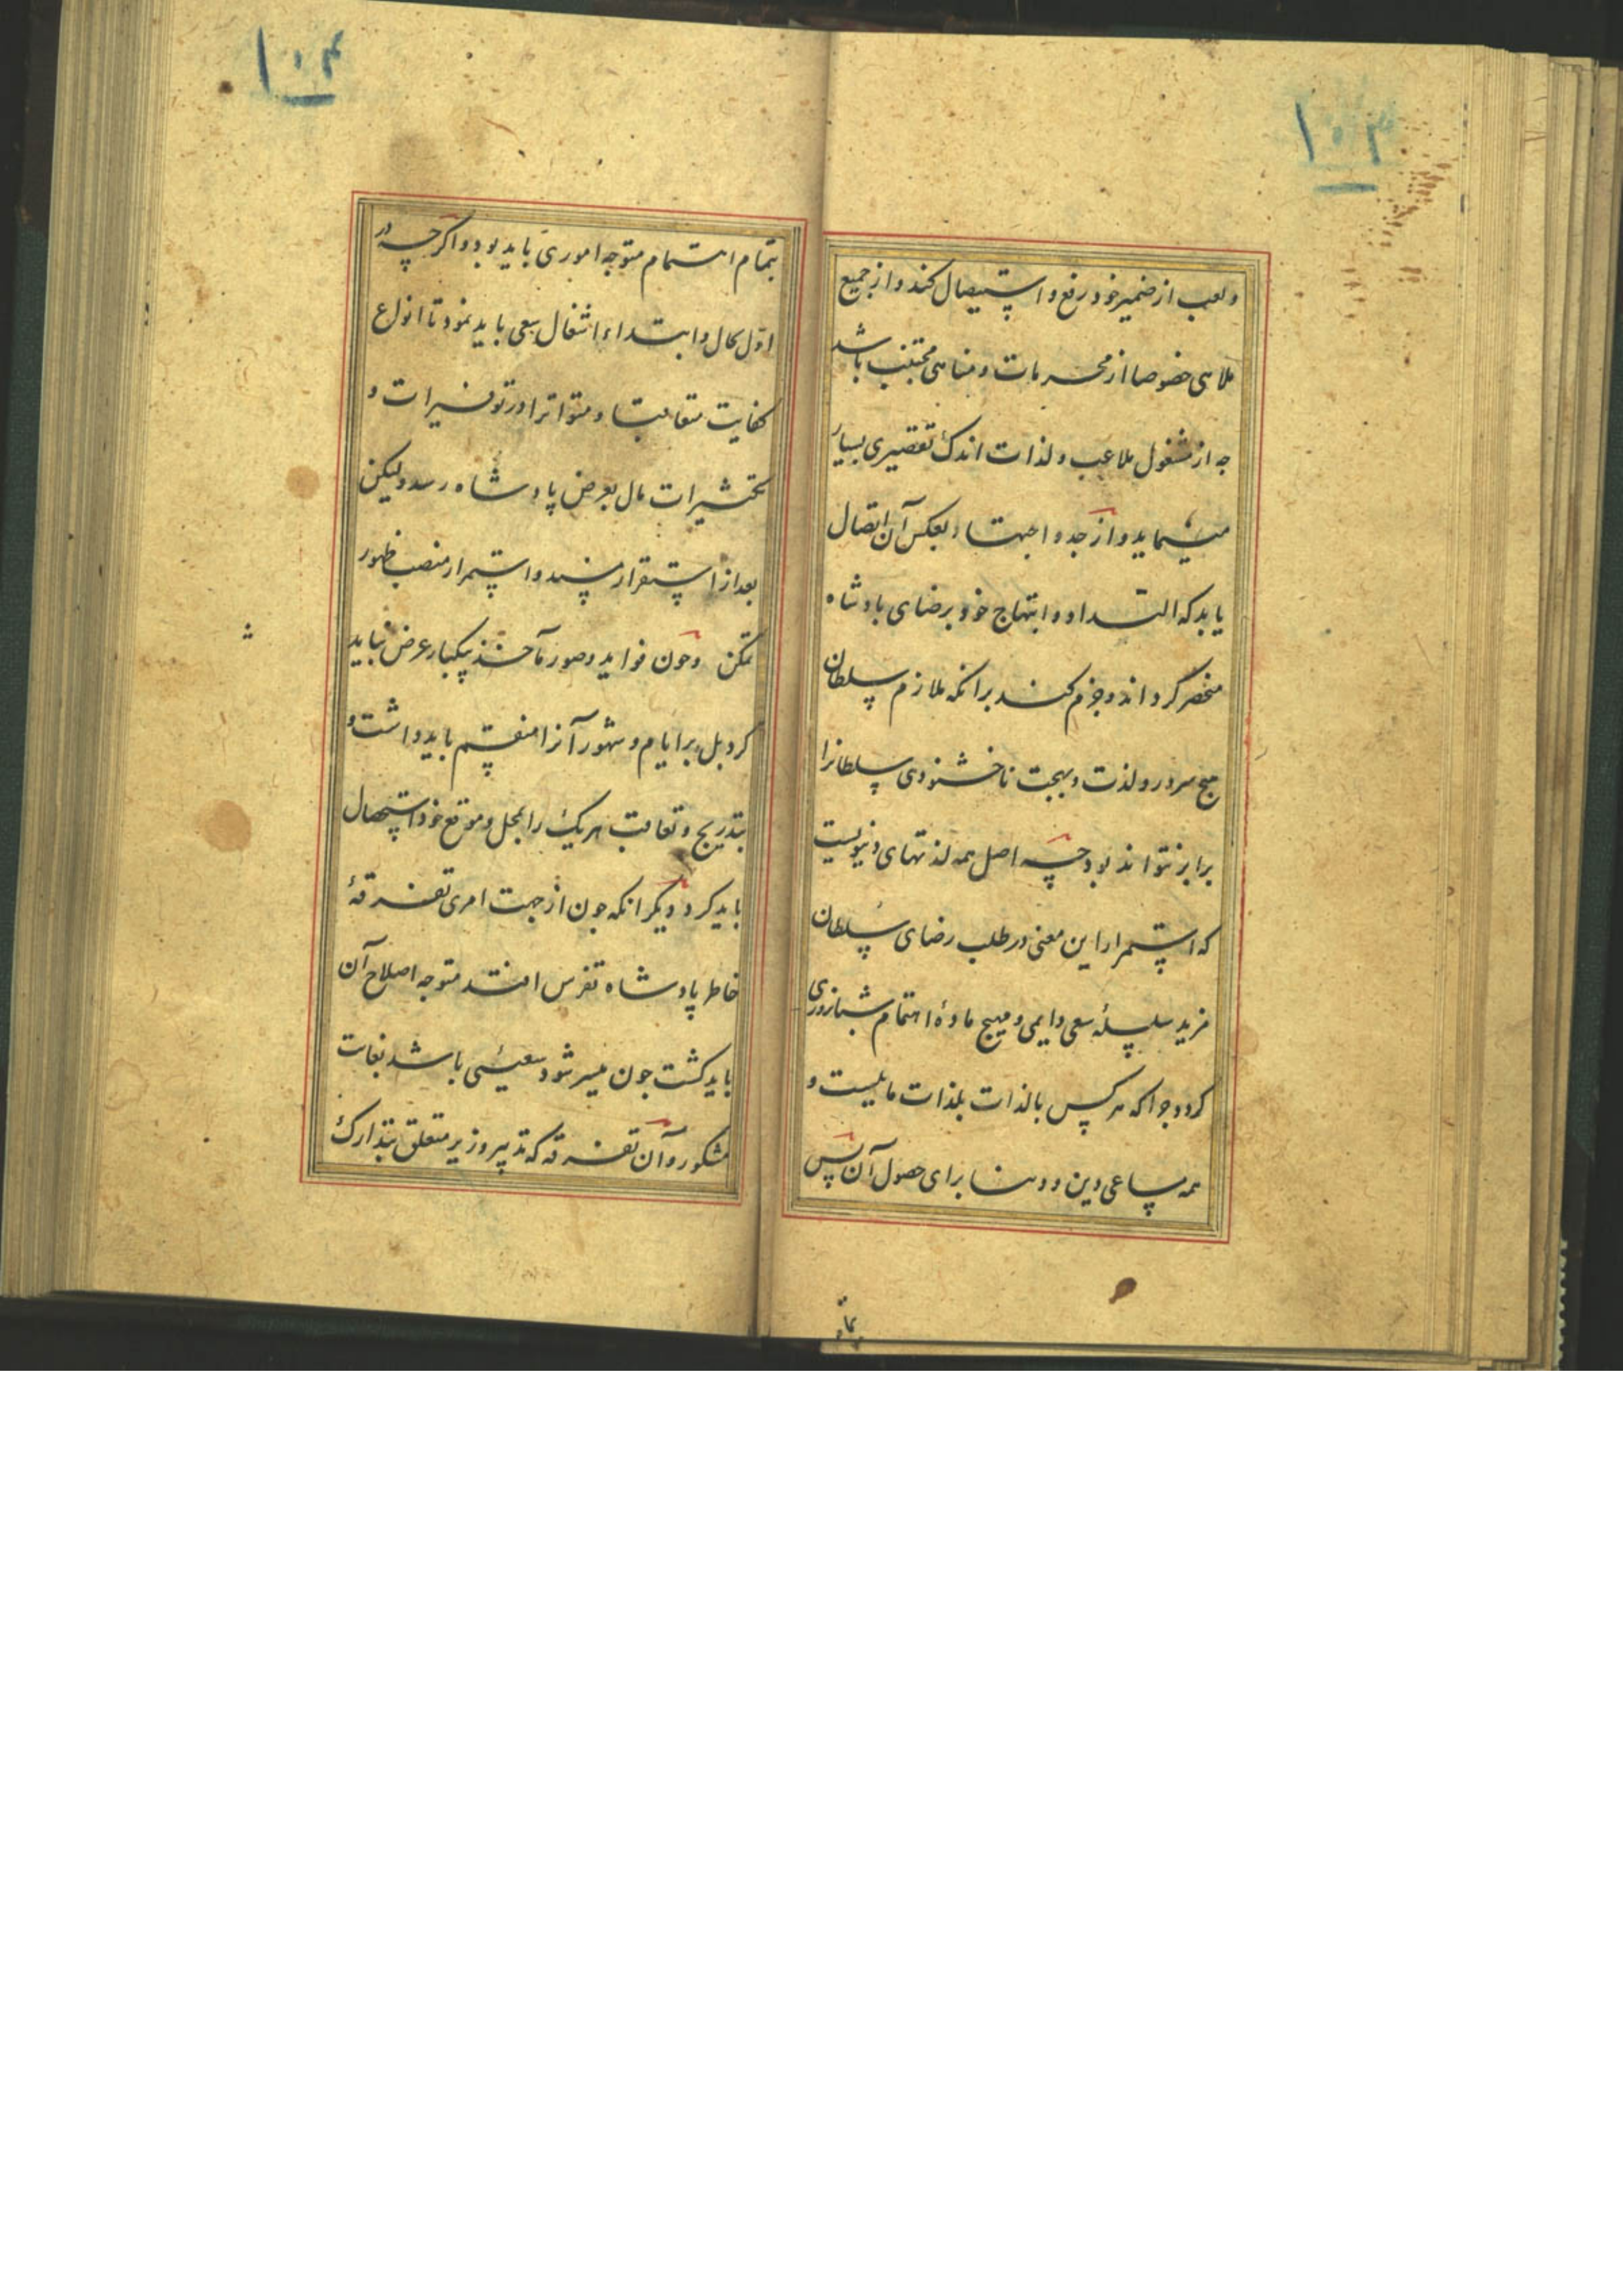 ۱۰۳
و لعب از ضمیر خود رفع و استیصال کند و از جمیع
ملاهی خصوصا از محرمات و مناهی مجتنب باشد
چه از مشغول ملاعب و لذات اندک تقصیری بسیار
مینماید و از جد و اجتهاد بعکس آن اتصال
یابد که التداد و ابتهاج خود برضای پادشاه
منحصر گرداند و جزم کند برانکه ملازم سلطان
هیچ سرور و لذت و بهجت ناخشنودی سلطانرا
برابر نتواند بود چه اصل همه لذتهای دنیویست
که استمرار این معنی در طلب رضای سلطان
مزید سلسله سعی دایمی و مهیج ماده اهتمام شبانروزی
کردد چرا که هرکس بالذات بلذات مایلست و
همه مساعی دین و دنیا برای حصول آن پس
۱۰۴
بتمام اهتمام متوجه اموری باید بود و اگرچه در
اول حال و ابتداء اشغال سعی باید نمود تا انواع
کفایت متعاقبا و متواترا در توفیرات و
تکثیرات مال بعرض پادشاه رسد ولیکن
بعد از استقرار مسند و استمرار منصب ظهور
تمکن و چون فواید و صور مآخذ یکبار عرض نباید
کرد بل بر ایام و شهور آنرا منقسم باید داشت و
بتدریج و تعاقب هریک را بمحل و موقع خود استحصال
باید کرد و دیگر انکه چون از جهت امری تفرقهٔ
خاطر پادشاه تفرس افتد متوجه اصلاح آن
باید گشت چون میسر شود سعیی باشد بغایت
مشکور و آن تفرقه که تدبیر وزیر متعلق بتدارک